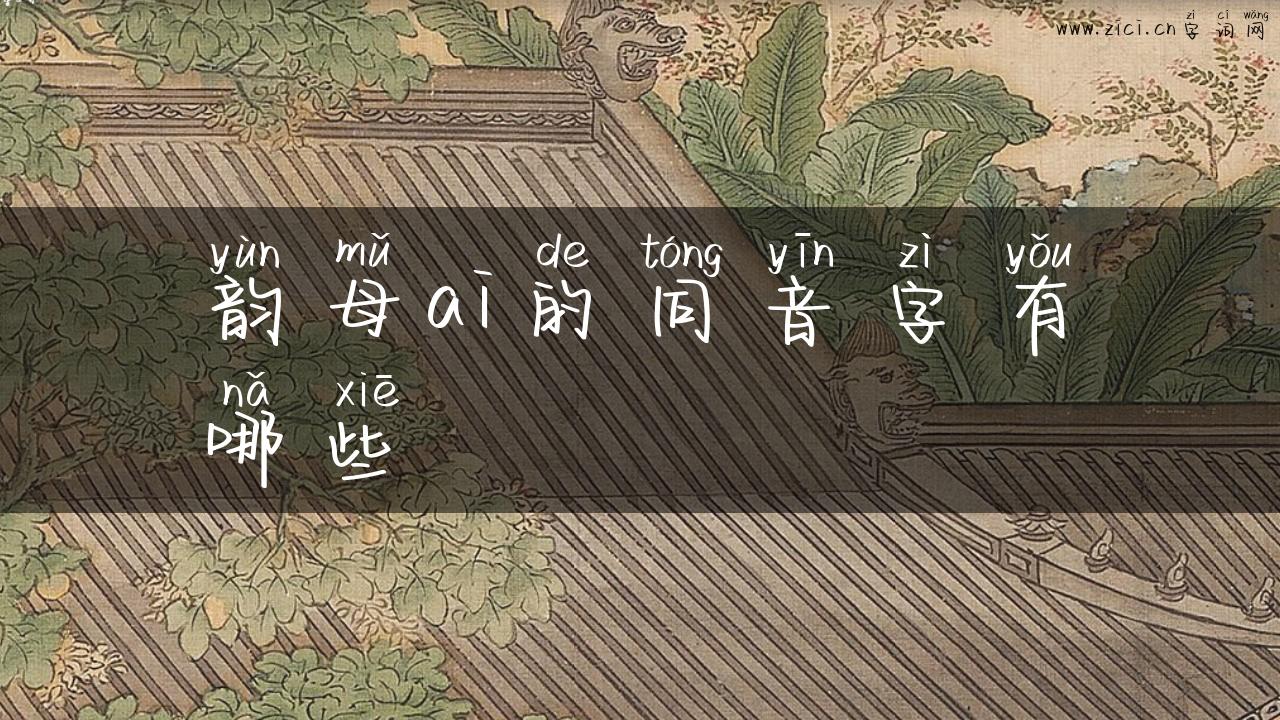 www.zici.cn 字词网
zì cí wǎng
yùn mǔ de tóng yīn zì yǒu
韵母aī的同音字有
nǎ xiē
哪些